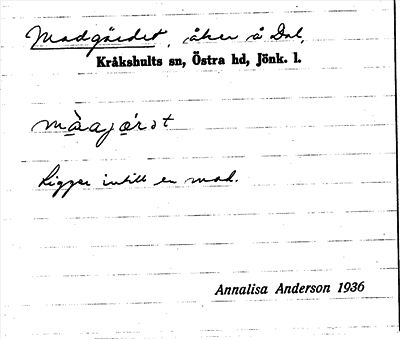 Madgärdet, åker å Dal,
Kråkshults sn, Östra hd, Jönk. l.
Ligger intill en mad.
Annalisa Anderson 1936